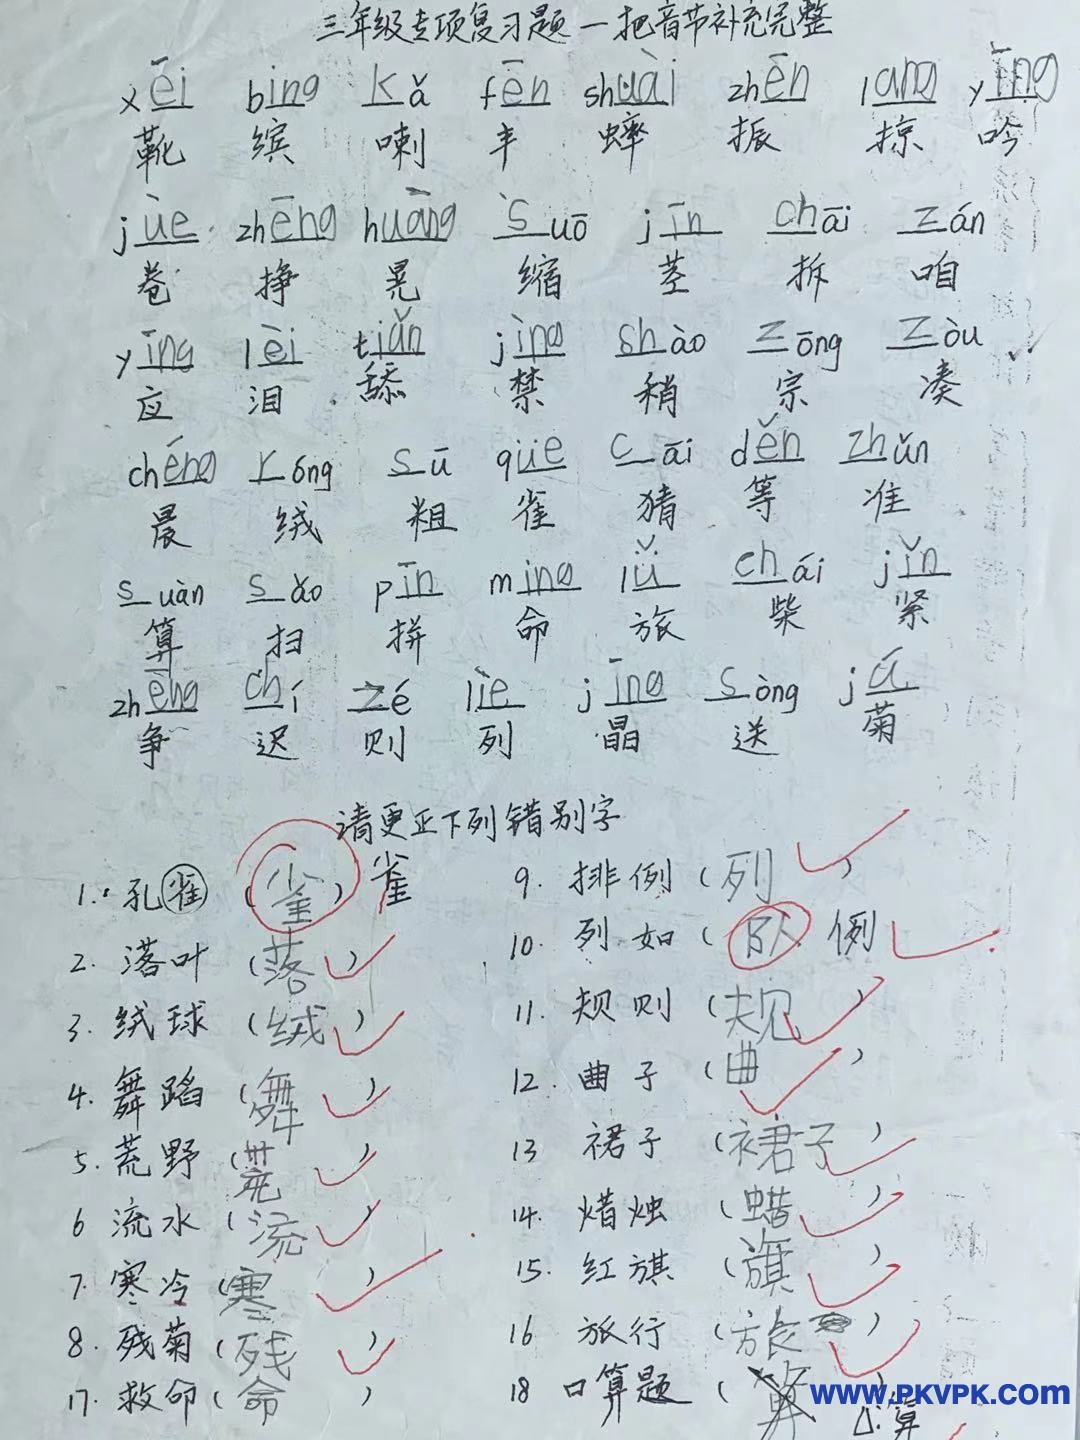 三年级专项复习题—把音节补充完整
xēi bing kǎ fēn shuài zhēn lang yīng
靴 缤 喇 丰 蟀 振 掠 吟
jùe zhēng huàng suō jīn chāi zán
卷 挣 晃 缩 茎 拆 咱
yīng lèi tiǎn jìng shào zōng zòu
应 泪 舔 禁 稍 宗 凑
chéng róng sū qùe cāi děn zhǔn
晨 绒 粗 雀 猜 等 准
suàn sǎo pīn ming lǚ chái jǐn
算 扫 拼 命 旅 柴 紧
zhèng chí zé lìe jīng sòng jú
争 迟 则 列 晶 送 菊
请更正下列错别字
1. 孔雀 (雀) 雀
2. 落叶 (落)
3. 绒球 (绒)
4. 舞蹈 (舞)
5. 荒野 (荒)
6 流水 (流)
7. 寒冷 (寒)
8. 残菊 (残)
17. 救命 (命)
9. 排例 (列)
10. 列如 (队 例
11. 规则 (规)
12. 曲子 (曲)
13 裙子 (裙子)
14. 蜡烛 (蜡)
15. 红旗 (旗)
16 旅行 (旅)
18 口算题 (算) 算
WWW.PKVPK.COM